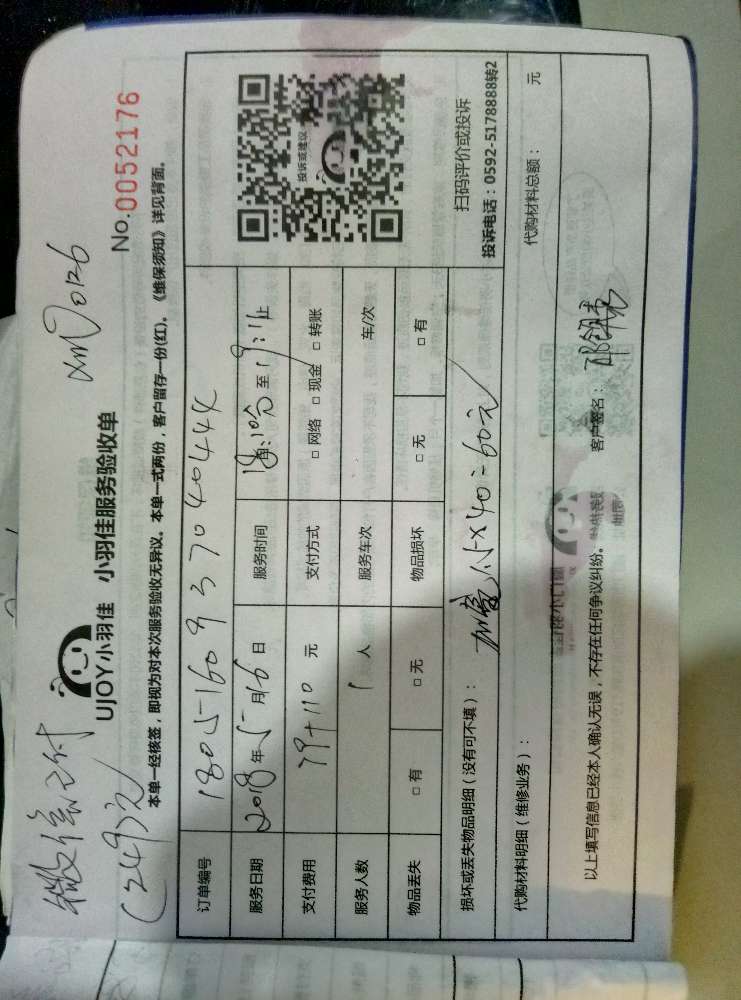 微信已付
(249)元
UJOY小羽佳 小羽佳服务验收单
xm0126
No.0052176
本单一经核签,即视为对本次服务验收无异议。本单一式两份,客户留存一份(红)。《维保须知》详见背面。
订单编号 180516093704044
服务日期 2018年5月16日 服务时间 至19:11止
支付费用 79+110 元 支付方式 □网络 □现金 □转账
服务人数 1人 服务车次 车/次
物品丢失 □有 □无 物品损坏 □无 □有
投诉或建议
扫码评价或投诉
投诉电话:0592-5178888转2
损坏或丢失物品明细(没有可不填):
代购材料明细(维修业务): 代购材料总额: 元
以上填写信息已经本人确认无误,不存在任何争议纠纷。 客户签名: